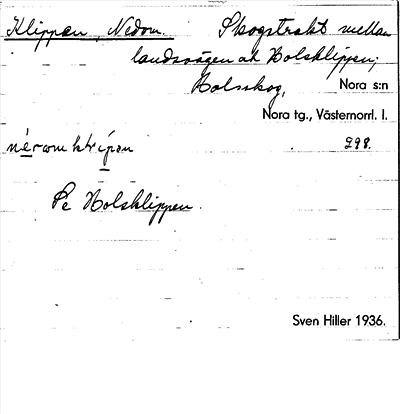 Klippen, Nedom. Skogstrakt mellan
landsvägen och Bolsklippen;
Bolsskog, Nora s:n
Nora tg., Västernorrl. l.
298.
Se Bolsklippen.
Sven Hiller 1936.